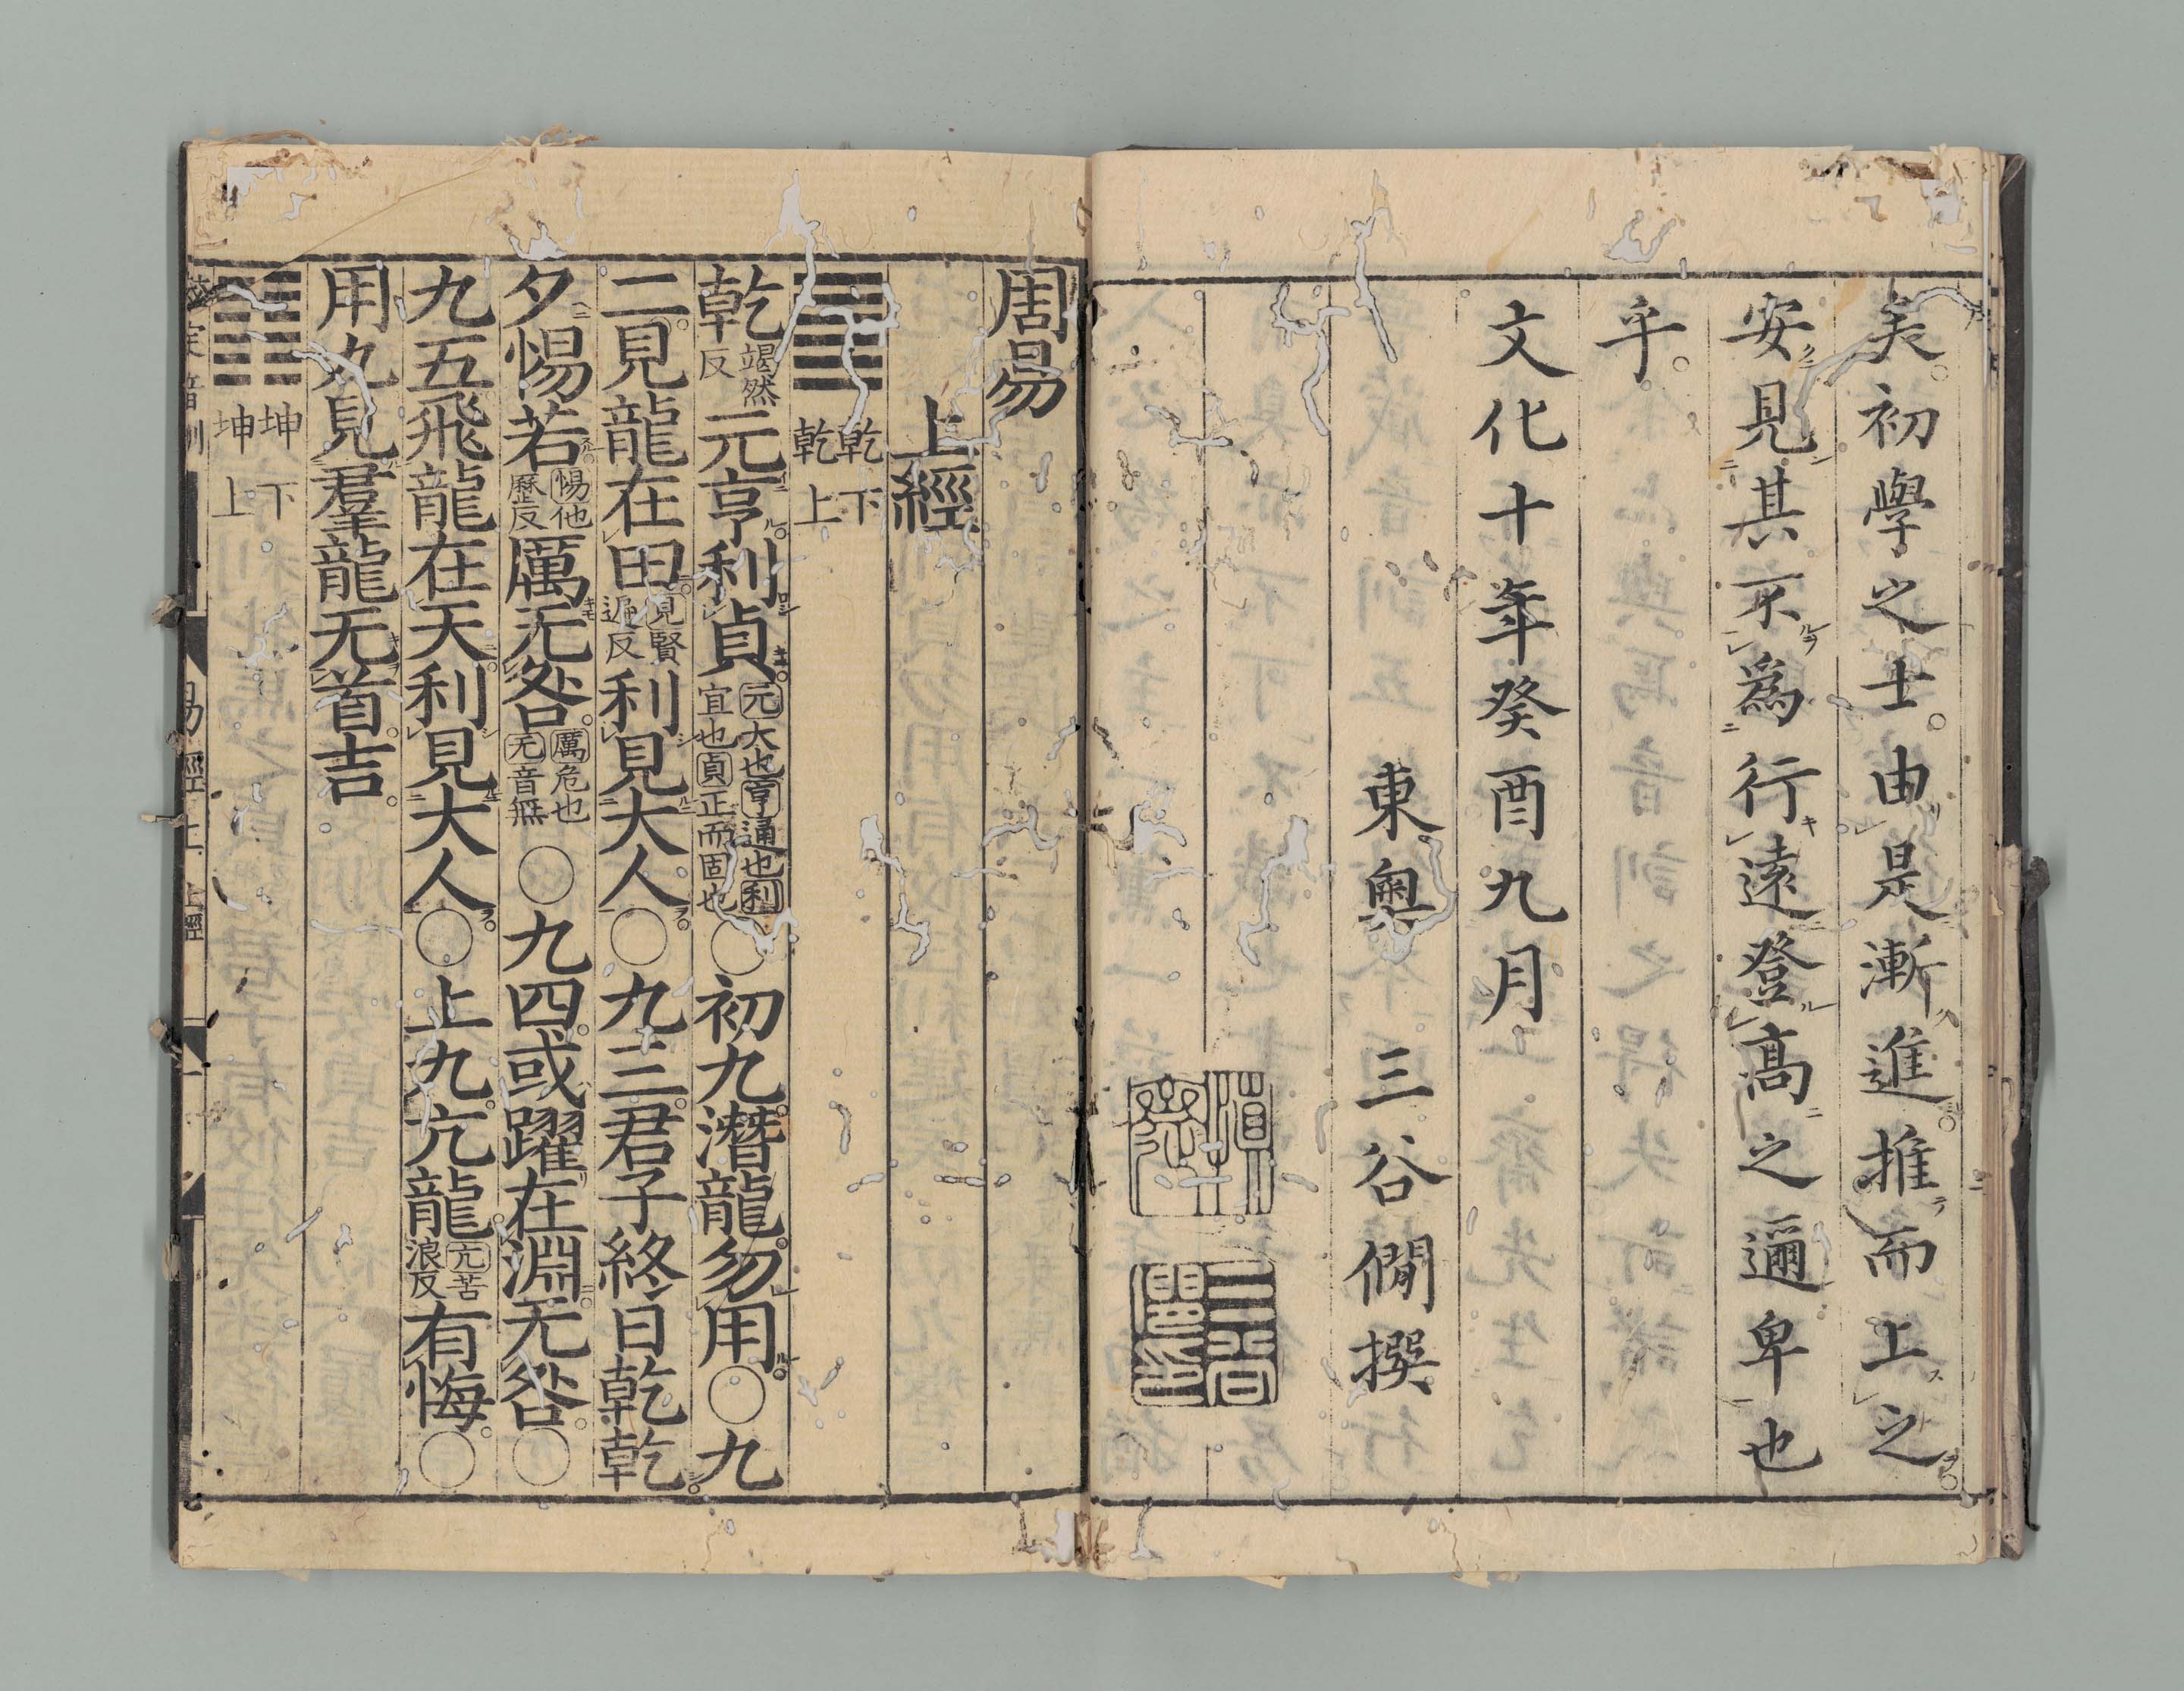 矣初學之士由是漸進推而上之
安見其不爲行遠登高之邇卑也
乎
文化十年癸酉九月
東奥三谷僩撰
周易
上經
乾下
乾上
乾竭然反元亨利貞元大也亨通也利宜也貞正而固也○初九潛龍勿用○九
二見龍在田見賢遍反利見大人○九三君子終日乾乾
夕惕若惕他歷反厲无咎厲危也无音無○九四或躍在淵无咎○
九五飛龍在天利見大人○上九亢龍亢苦浪反有悔○
用九見羣龍无首吉
坤下
坤上
音訓
易經上 上經